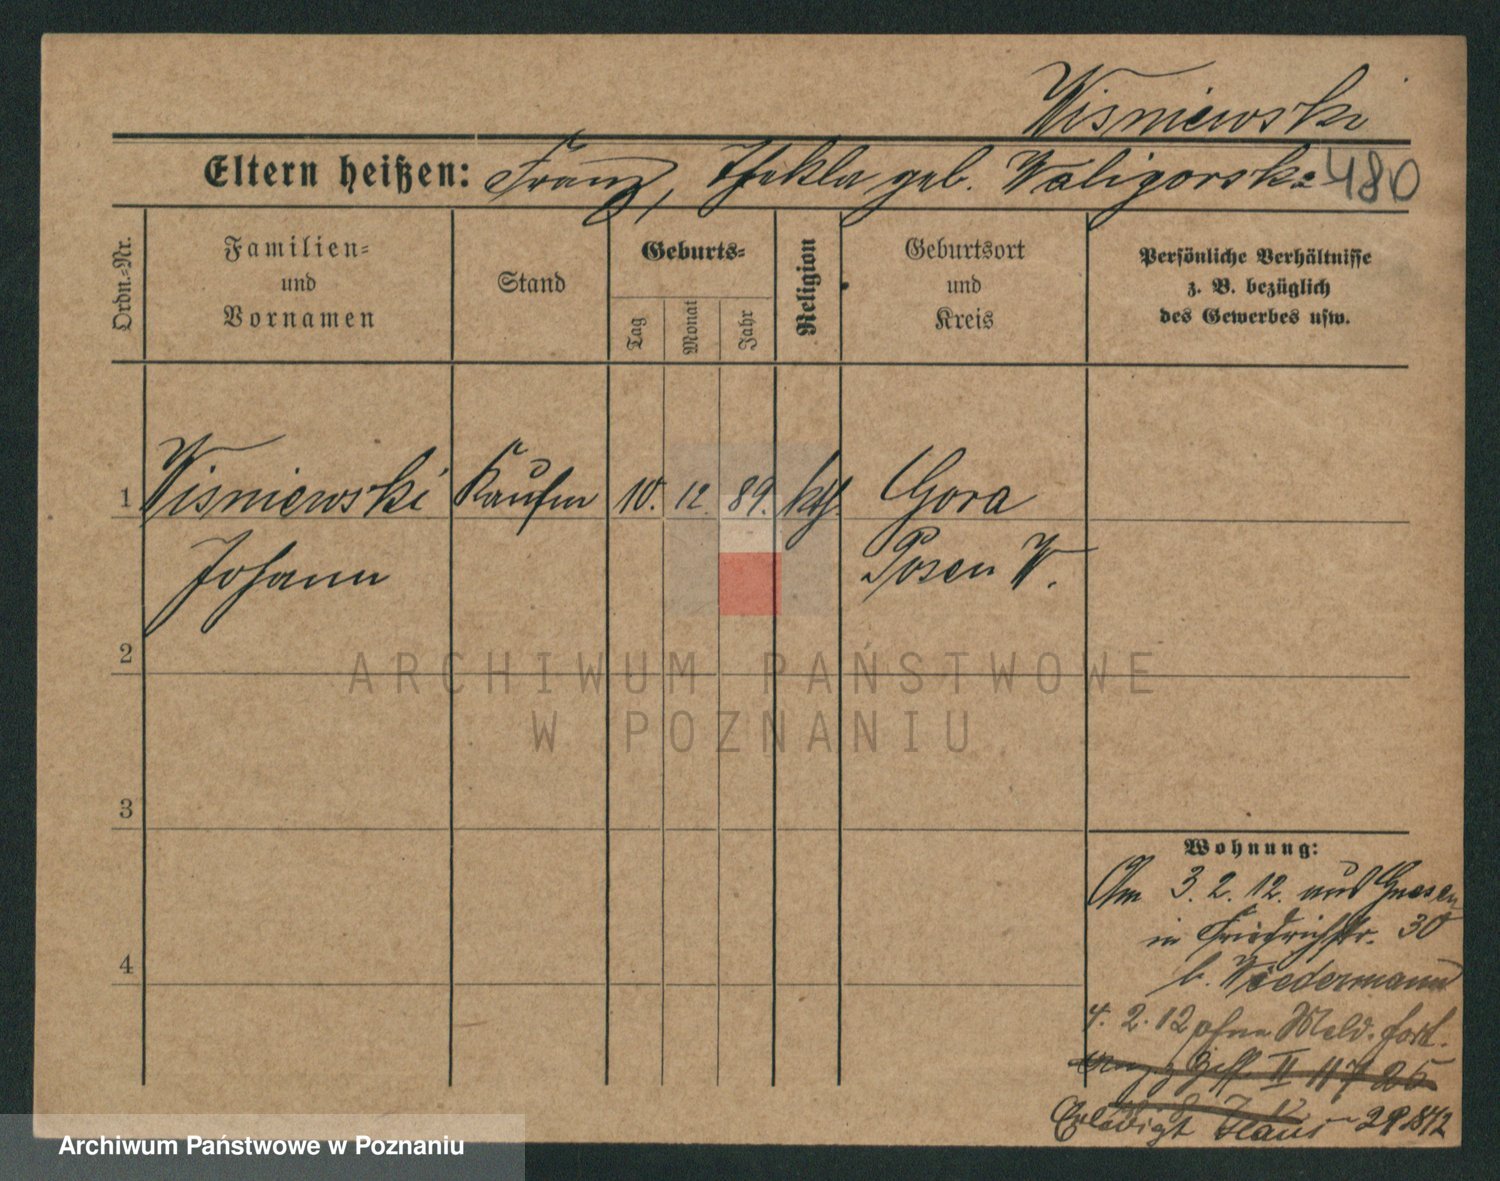 Wisniewski
Eltern heißen: Franz, Thekla geb. Waligorska 480
Ordn.-Nr.
Familien-
und
Vornamen
Stand
Geburts-
Tag
Monat
Jahr
Religion
Geburtsort
und
Kreis
Persönliche Verhältnisse
z. B. bezüglich
des Gewerbes usw.
1 Wisniewski Kaufm 10. 12. 89. kth. Gora
Johann Posen W.
2
3
4
ARCHIWUM PAŃSTWOWE
W POZNANIU
Wohnung:
Am 3. 2. 12. aus Gnesen
in Friedrichstr. 30
b. Wiedermann
4. 2. 12 ohne Meld. fort.
II 117 25
Erledigt
Archiwum Państwowe w Poznaniu